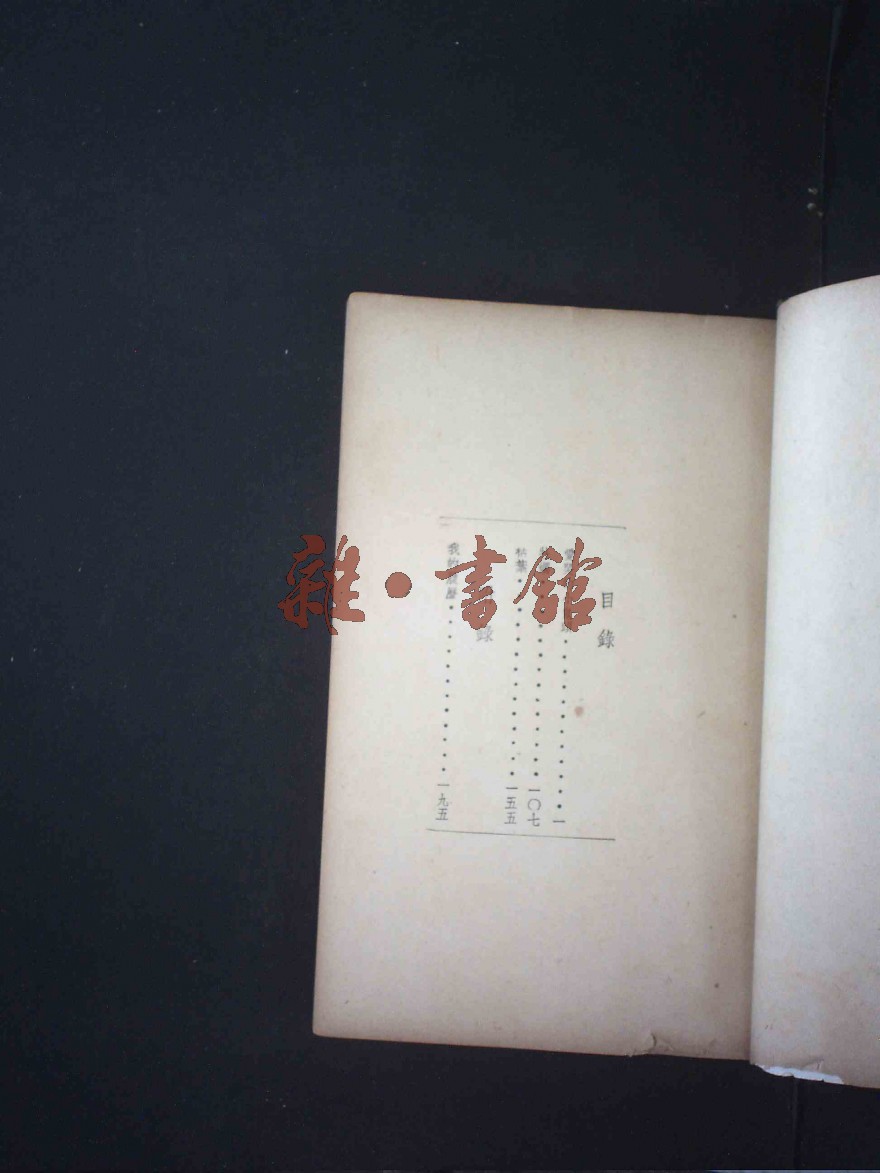 目錄
一
一〇七
枯葉 一五五
錄
我的 歷 一九五
雜·書館